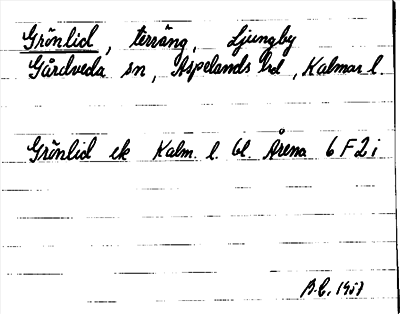 Grönlid, terräng, Ljungby
Gårdveda sn, Aspelands hd, Kalmar l.
Grönlid ek Kalm. l. bl. Årena 6 F 2 i
B.C. 1951